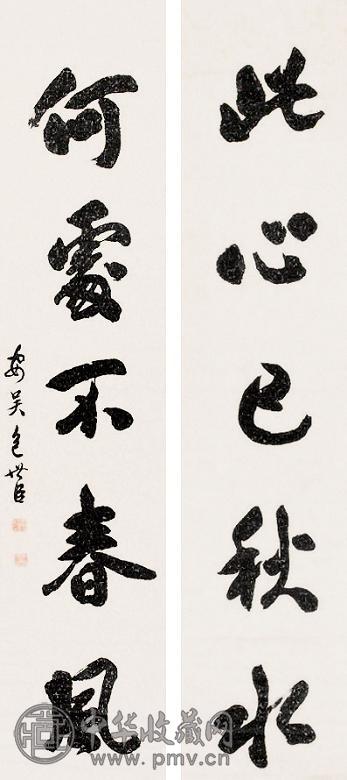 此心已秋水
何處不春風
安吳包世臣
中华收藏网
www.pmv.cn